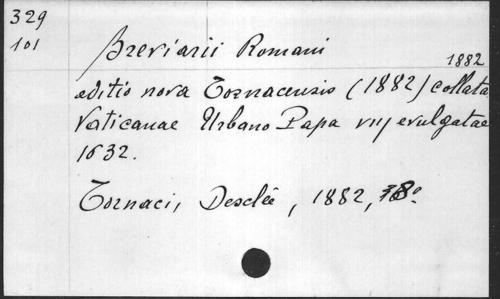 329
101
Breviarii Romani
1882
editio nova Tornacensis (1882) collata
Vaticanae Urbano Papa VIIJ evulgatae
1632.
Tornaci, Desclée, 1882, 8°.